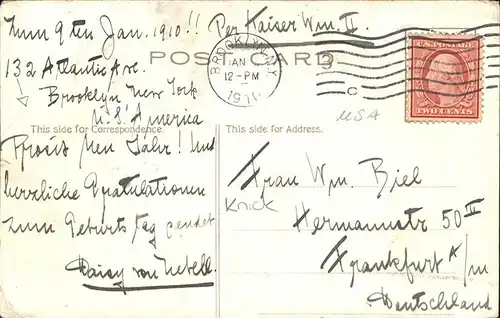 Zum 9ten Jan. 1910!! Per Kaiser Wm. II.
POST CARD
132 Atlantic Ave.
Brooklyn New York
U.S. America
This side for Correspondence.
Prosit Neu Jahr! Und
herzliche Gratulationen
zum Geburtstag sendet
Daisy von
BROOKLYN, N.Y.
JAN
12-PM
1910
C
U.S. POSTAGE
TWO CENTS
USA
This side for Address.
Frau Wm. Biel
Knick
Hermannstr 50 II
Frankfurt A/m
Deutschland